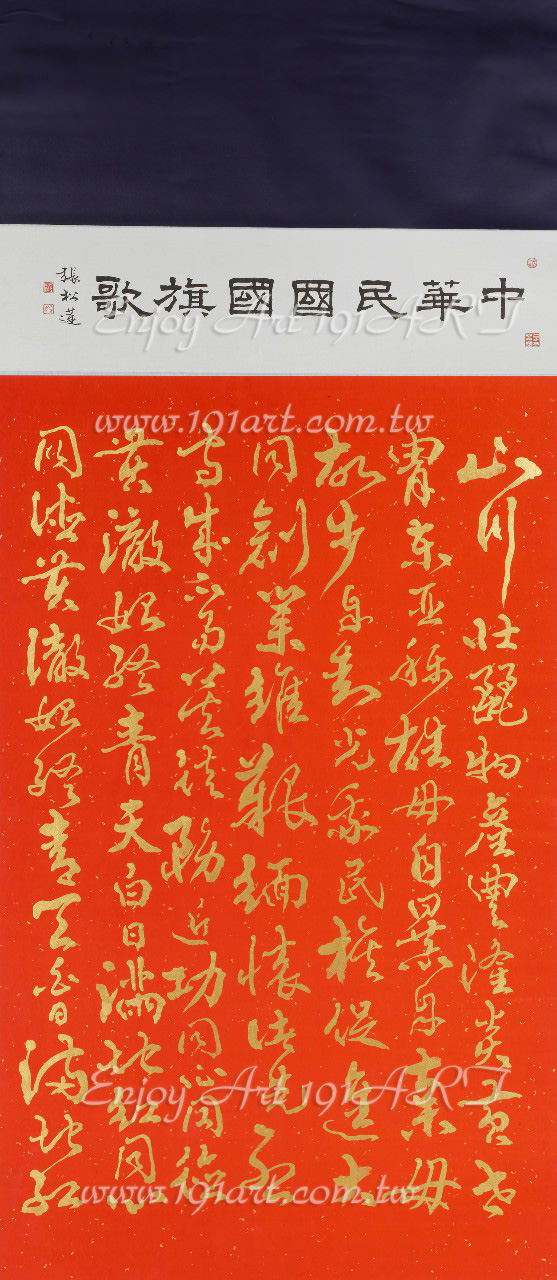 中華民國國旗歌
張松蓮
山川壯麗物產豐隆炎黃世
冑東亞稱雄毋自暴自棄毋
故步自封光我民族促進大
同創業維艱緬懷諸先烈
守成不易莫徒務近功同心同德
貫徹始終青天白日滿地紅同心
同德貫徹始終青天白日滿地紅
Enjoy Art 191ART
www.191art.com.tw
Enjoy Art 191ART
www.191art.com.tw